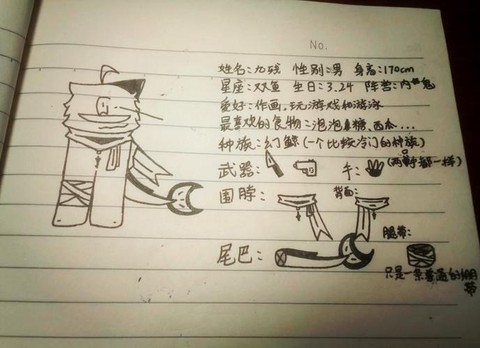 No.
姓名:九残 性别:男 身高:170cm
星座:双鱼 生日:3.24 阵营:内鬼
爱好:作画,玩游戏和游泳
最喜欢的食物:泡泡糖,西瓜...
种族:幻鲸(一个比较冷门的种族)
武器: 手: (两只都一样)
围脖: 背面:
腿带:
尾巴:
只是一条普通的绷带